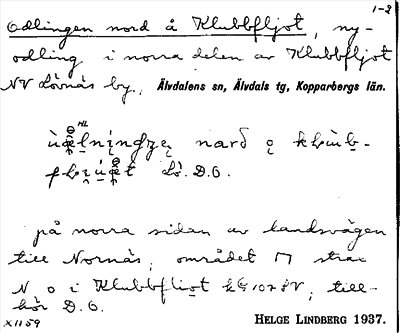 1-2
Odlingen nord å Klubbfljot, ny-
odling i norra delen av Klubbfljot
NV Lövnäs by., Älvdalens sn, Älvdals tg, Kopparbergs län.
nard
Lö. D.O.
på norra sidan av landsvägen
till Nornäs, området strax
N o i Klubbfliot; till-
hör D.O.
X1159
HELGE LINDBERG 1937.